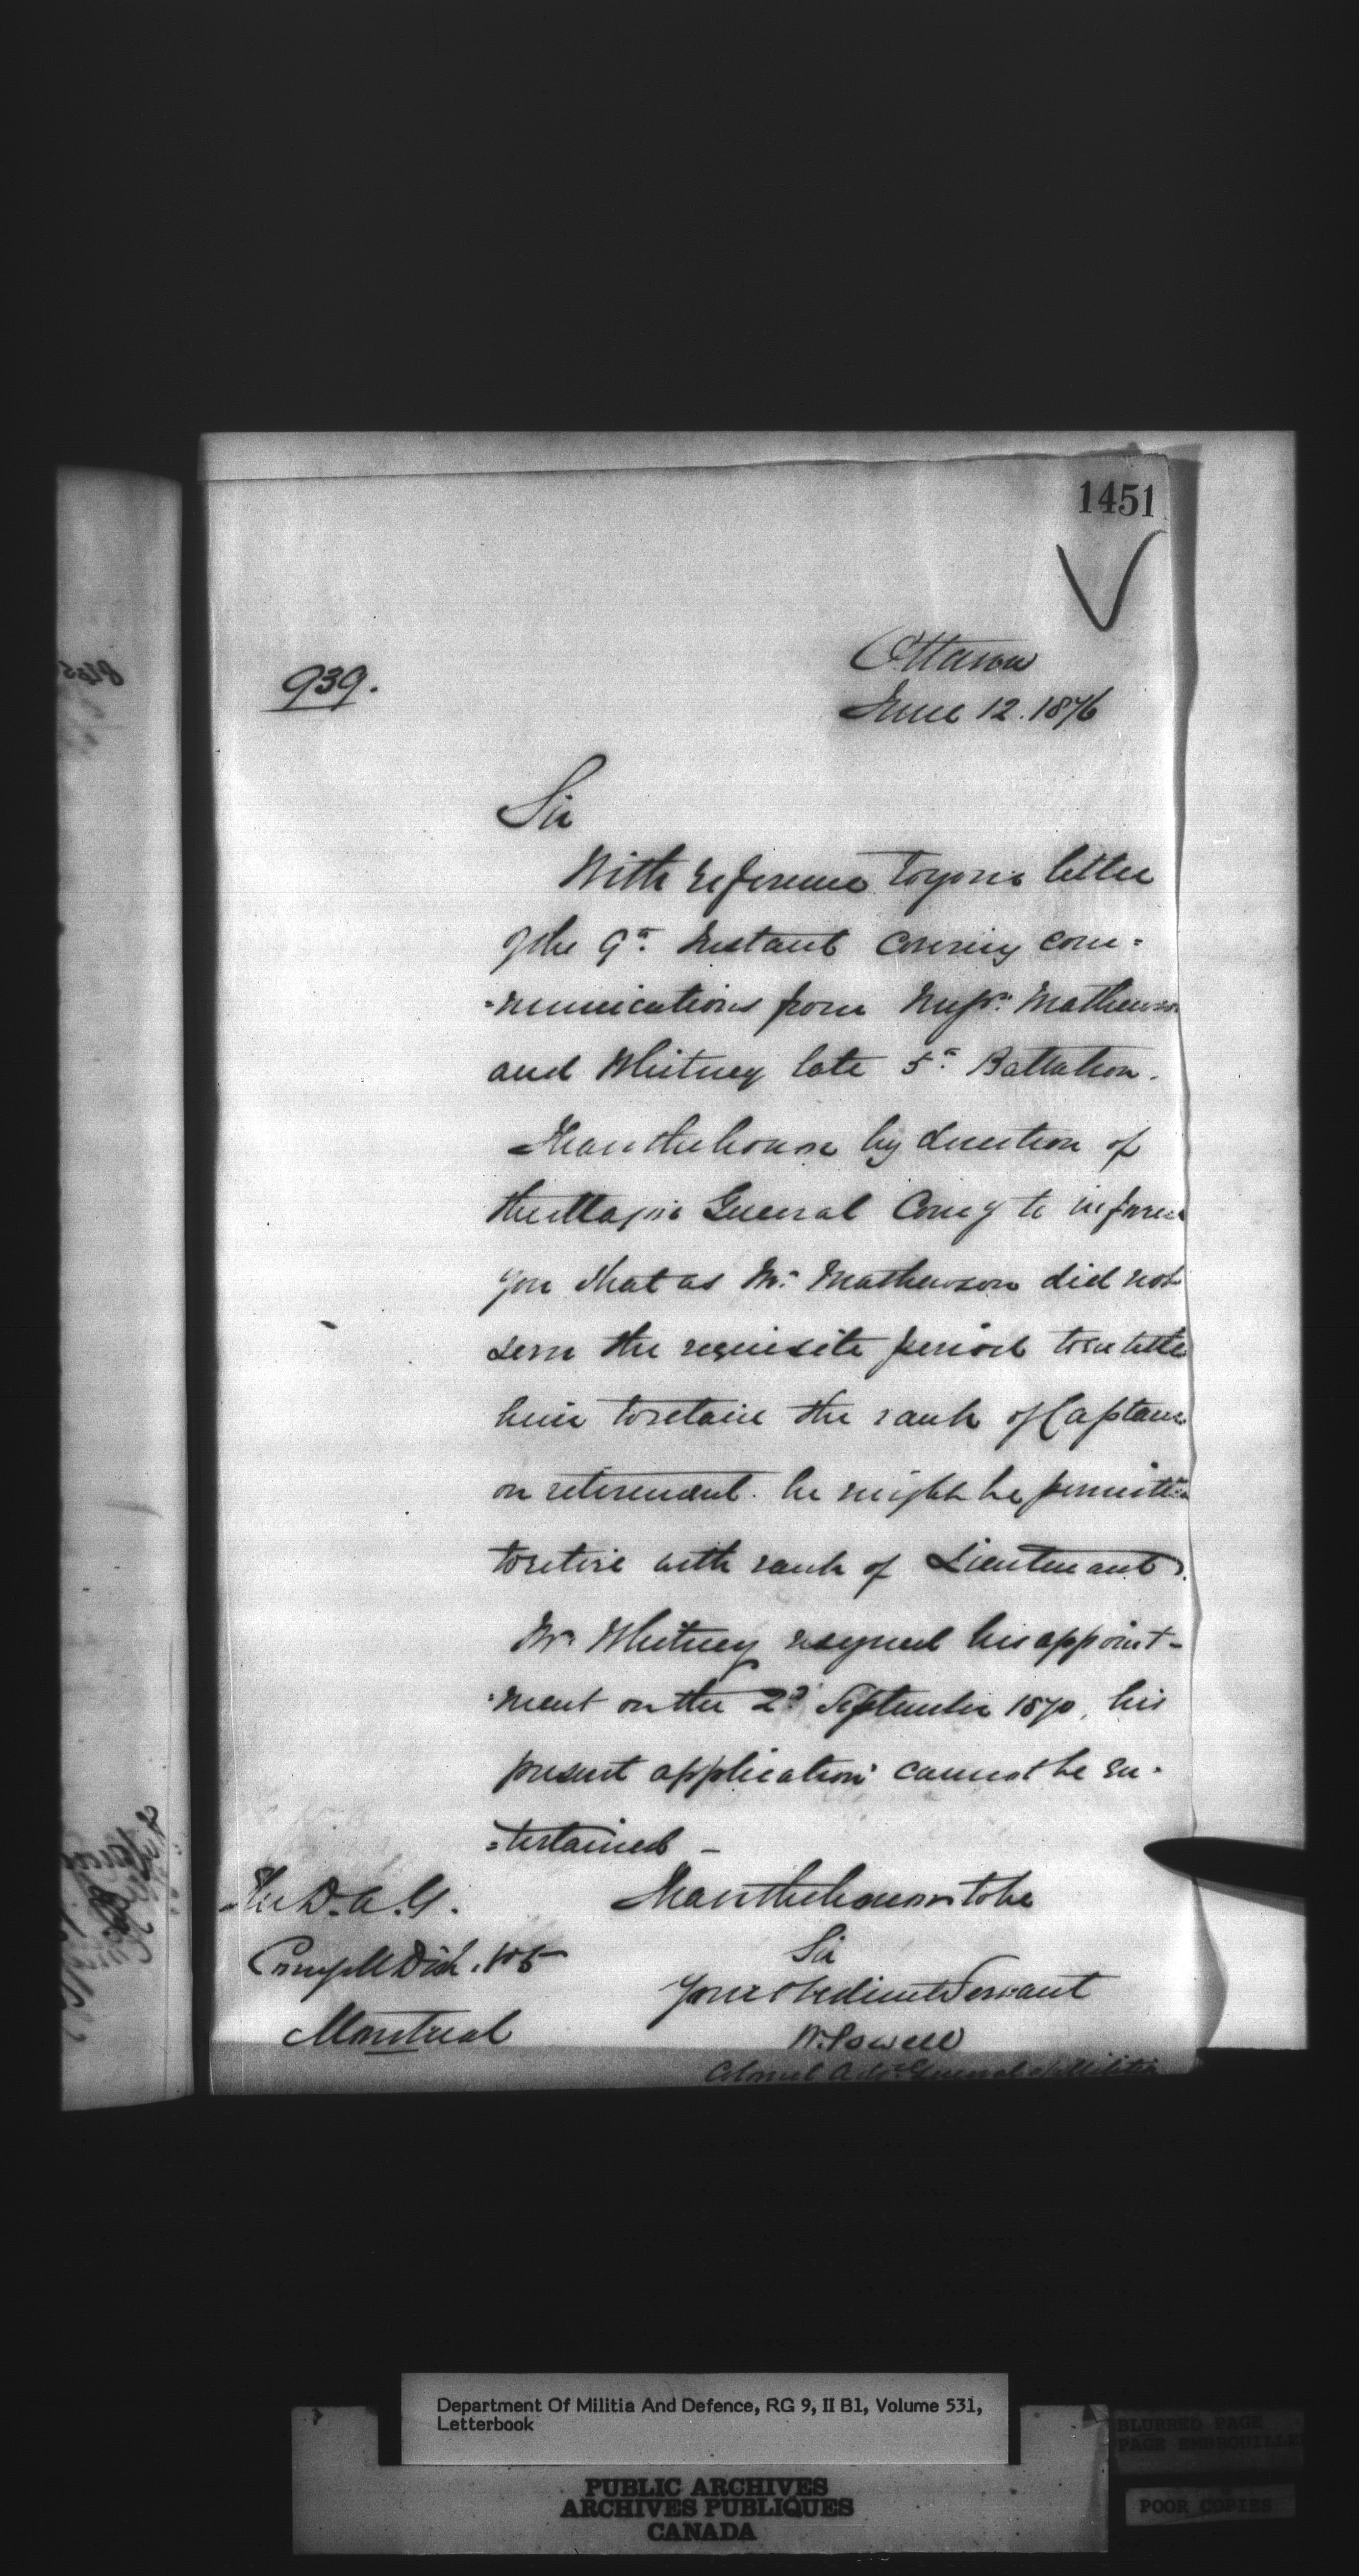 1451
Ottawa
939.
June 12. 1876
Sir
With reference to your letter
of the 9th Instant covering com=
=munications from Messrs. Mathewson
and Whitney late 5th Battalion.
I have the honour by direction of
the Major General Comg to inform
you that as Mr. Mathewson did not
serve the requisite period to entitle
him to retain the rank of Captain
on retirement. he might be permitted
to retire with rank of Lieutenant.
Mr. Whitney resigned his appoint-
=ment on the 2d September 1870, his
present application cannot be en=
=tertained -
I have the honour to be
Sir
Your obedient Servant
W. Powell
Colonel Adjt. General of Militia
The D.A.G.
Comg M Dist. No 5
Montreal
Department Of Militia And Defence, RG 9, II B1, Volume 531,
Letterbook
PUBLIC ARCHIVES
ARCHIVES PUBLIQUES
CANADA
BLURRED PAGE
PAGE EMBROUILLE
POOR COPIES